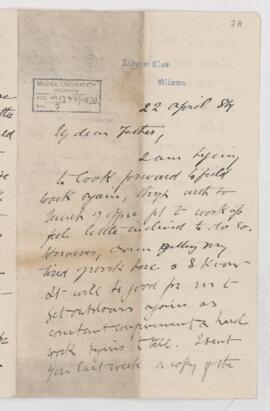 7A
Rideau Club
Ottawa
McGILL UNIVERSITY
ARCHIVES
ACC. NO.
REF. 7
22 April 84
My dear Father,
I am trying
to look forward to field
work again, though with so
much office to work up
feel little inclined to do so.
However, am getting my
tired spirits here & I know
it will be good for me to
get outdoors again as
constant confinement & hard
work begins to tell. I sent
you last week a copy of the